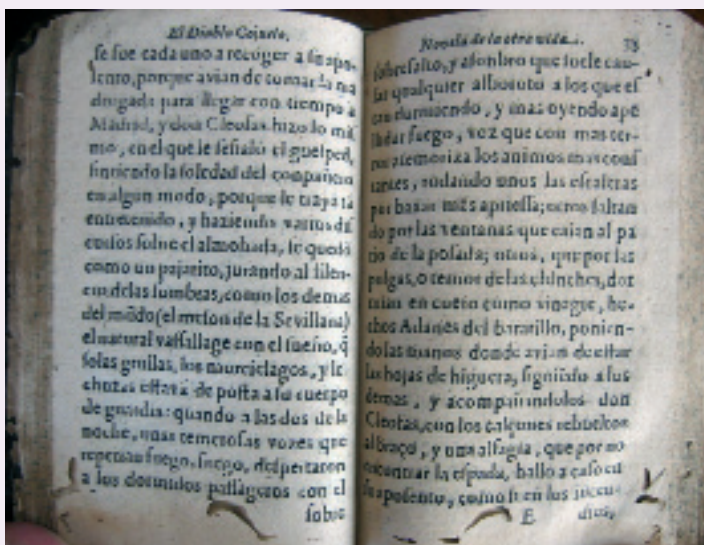 El Diablo Cojuelo.
se fue cada uno a recoger a su apo-
sento, porque avian de tomar la ma
drugada para llegar con tiempo a
Madrid, y don Cleofas hizo lo mis
mo, en el que le señalò el guesped,
sintiendo la soledad del compañero
en algun modo, porque le traya tã
entretenido, y haziendo varios dis
cursos sobre el almohada, se quedò
como un pajarito, jurando al silen-
cio de las sombras, como los demas
del mũdo (el meson de la Sevillana)
el natural vassallage con el sueño, q̃
solas grullas, los murcielagos, y le
chuzas estavã de posta a su cuerpo
de guardia: quando a las dos de la
noche, unas temerosas vozes que
repetian fuego, fuego, despertaron
a los dormidos passageros con el
sobre
Novela de la otra vida.
sobresalto, y asombro que suele cau-
sar qualquier alboroto a los que es
tan durmiendo, y mas oyendo ape
llidar fuego, voz que con mas ter-
ror atemoriza los animos mas cons
tantes, rodando unos las escaleras
por baxar mas apriessa; otros saltan
do por las ventanas que caian al pa
tio de la posada; otros, que por las
pulgas, o temor de las chinches, dor
mian en cueros como vinagre, he-
chos Adanes del baratillo, ponien-
do las manos donde avian de estar
las hojas de higuera, siguiẽdo a los
demas, y acompañandolos don
Cleofas, con los calçones rebueltos
al braço, y una alfagia, que por no
encontrar la espada, hallò acaso en
su aposento, como si en los incen-
E
dios,